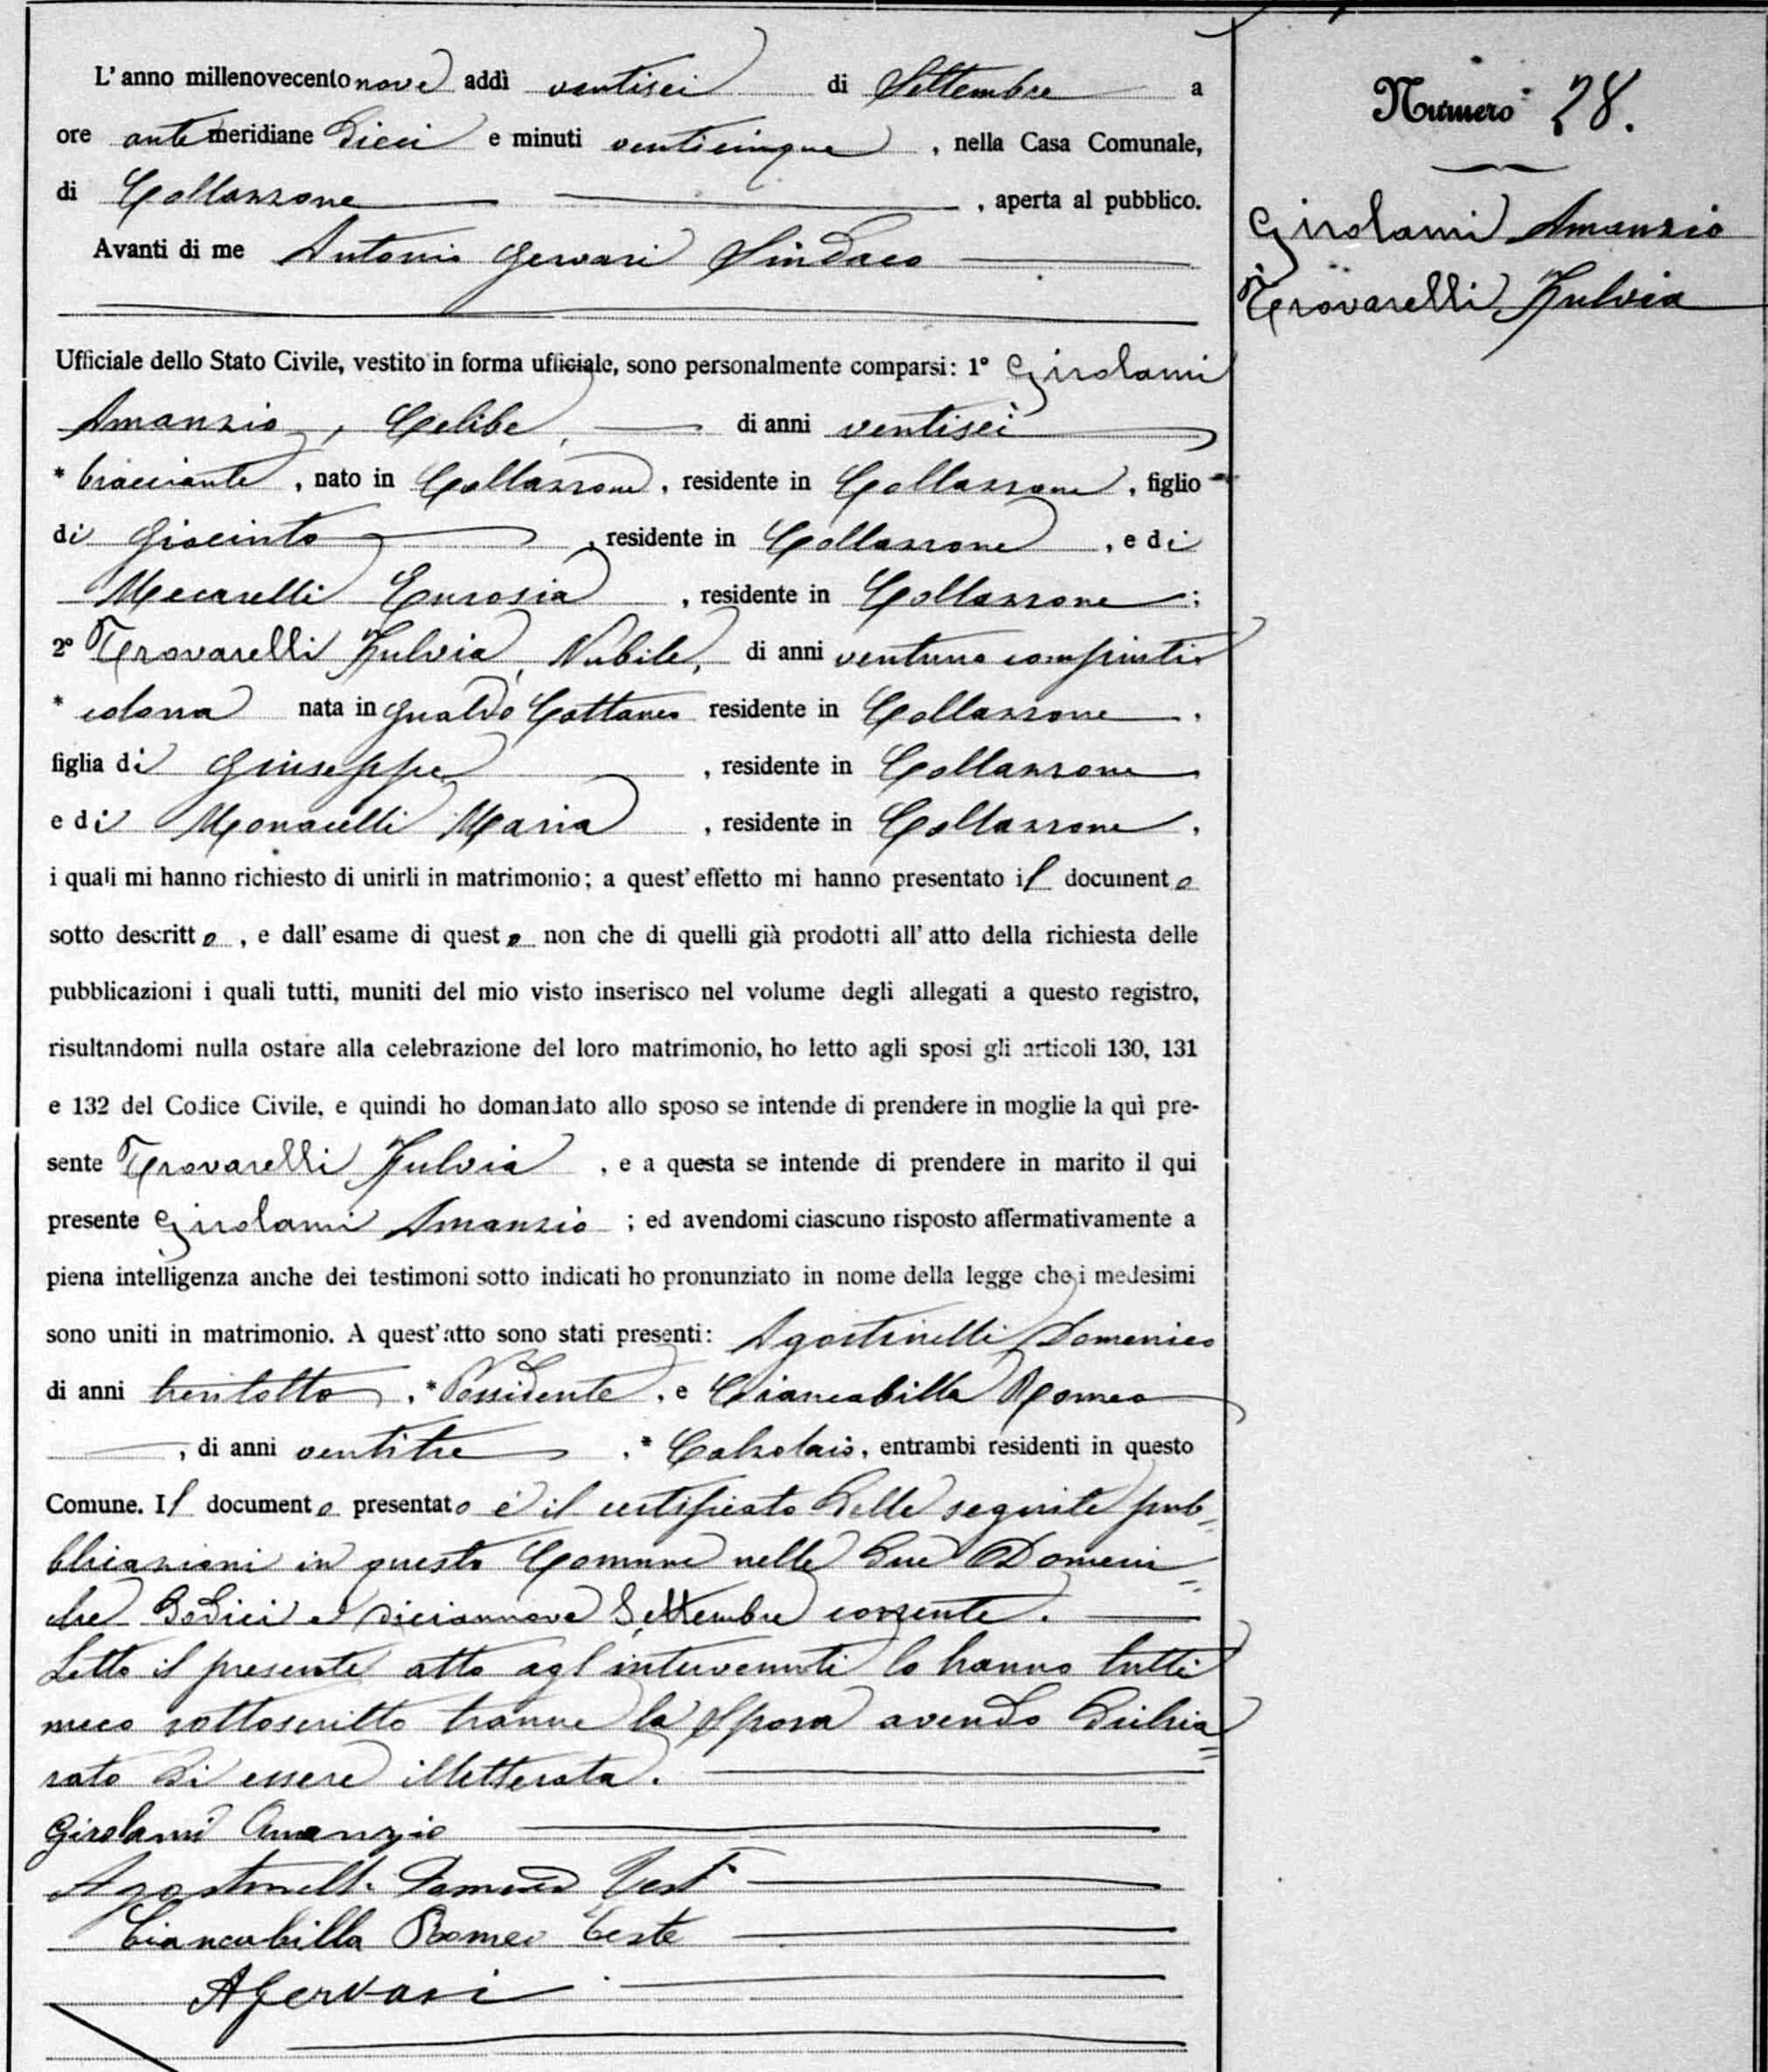 L'anno millenovecento nove addì ventisei di Settembre a
ore antemeridiane dieci e minuti venticinque, nella Casa Comunale,
di Collazzone, aperta al pubblico.
Avanti di me Antonio Gervasi Sindaco
Ufficiale dello Stato Civile, vestito in forma ufficiale, sono personalmente comparsi: 1° Girolami
Amanzio, Celibe, di anni ventisei
* bracciante, nato in Collazzone, residente in Collazzone, figlio
di Giacinto, residente in Collazzone, e di
Mecarelli Eurosia, residente in Collazzone;
2° Trovarelli Fulvia, Nubile, di anni ventuno compiuti
* colona nata in Gualdo Cattaneo residente in Collazzone,
figlia di Giuseppe, residente in Collazzone
e di Monacelli Maria, residente in Collazzone,
i quali mi hanno richiesto di unirli in matrimonio; a quest'effetto mi hanno presentato il documento
sotto descritto, e dall'esame di questo non che di quelli già prodotti all'atto della richiesta delle
pubblicazioni i quali tutti, muniti del mio visto inserisco nel volume degli allegati a questo registro,
risultandomi nulla ostare alla celebrazione del loro matrimonio, ho letto agli sposi gli articoli 130, 131
e 132 del Codice Civile, e quindi ho domandato allo sposo se intende di prendere in moglie la quì pre-
sente Trovarelli Fulvia, e a questa se intende di prendere in marito il qui
presente Girolami Amanzio; ed avendomi ciascuno risposto affermativamente a
piena intelligenza anche dei testimoni sotto indicati ho pronunziato in nome della legge che i medesimi
sono uniti in matrimonio. A quest'atto sono stati presenti: Agostinelli Domenico
di anni trentotto, * Possidente, e Ciancabilla Romeo
, di anni ventitre, * Calzolaio, entrambi residenti in questo
Comune. Il documento presentato è il certificato delle seguite pub=
blicazioni in questo Comune nelle due Domeni=
che dodici e diciannove Settembre corrente.
Letto il presente atto agl'intervenuti lo hanno tutti
meco sottoscritto tranne la Sposa avendo dichia=
rato di essere illetterata.
Girolami Amanzio
Agostinelli Domenico Test
Ciancabilla Romeo teste
A Gervasi
Numero 28.
Girolami Amanzio
Trovarelli Fulvia